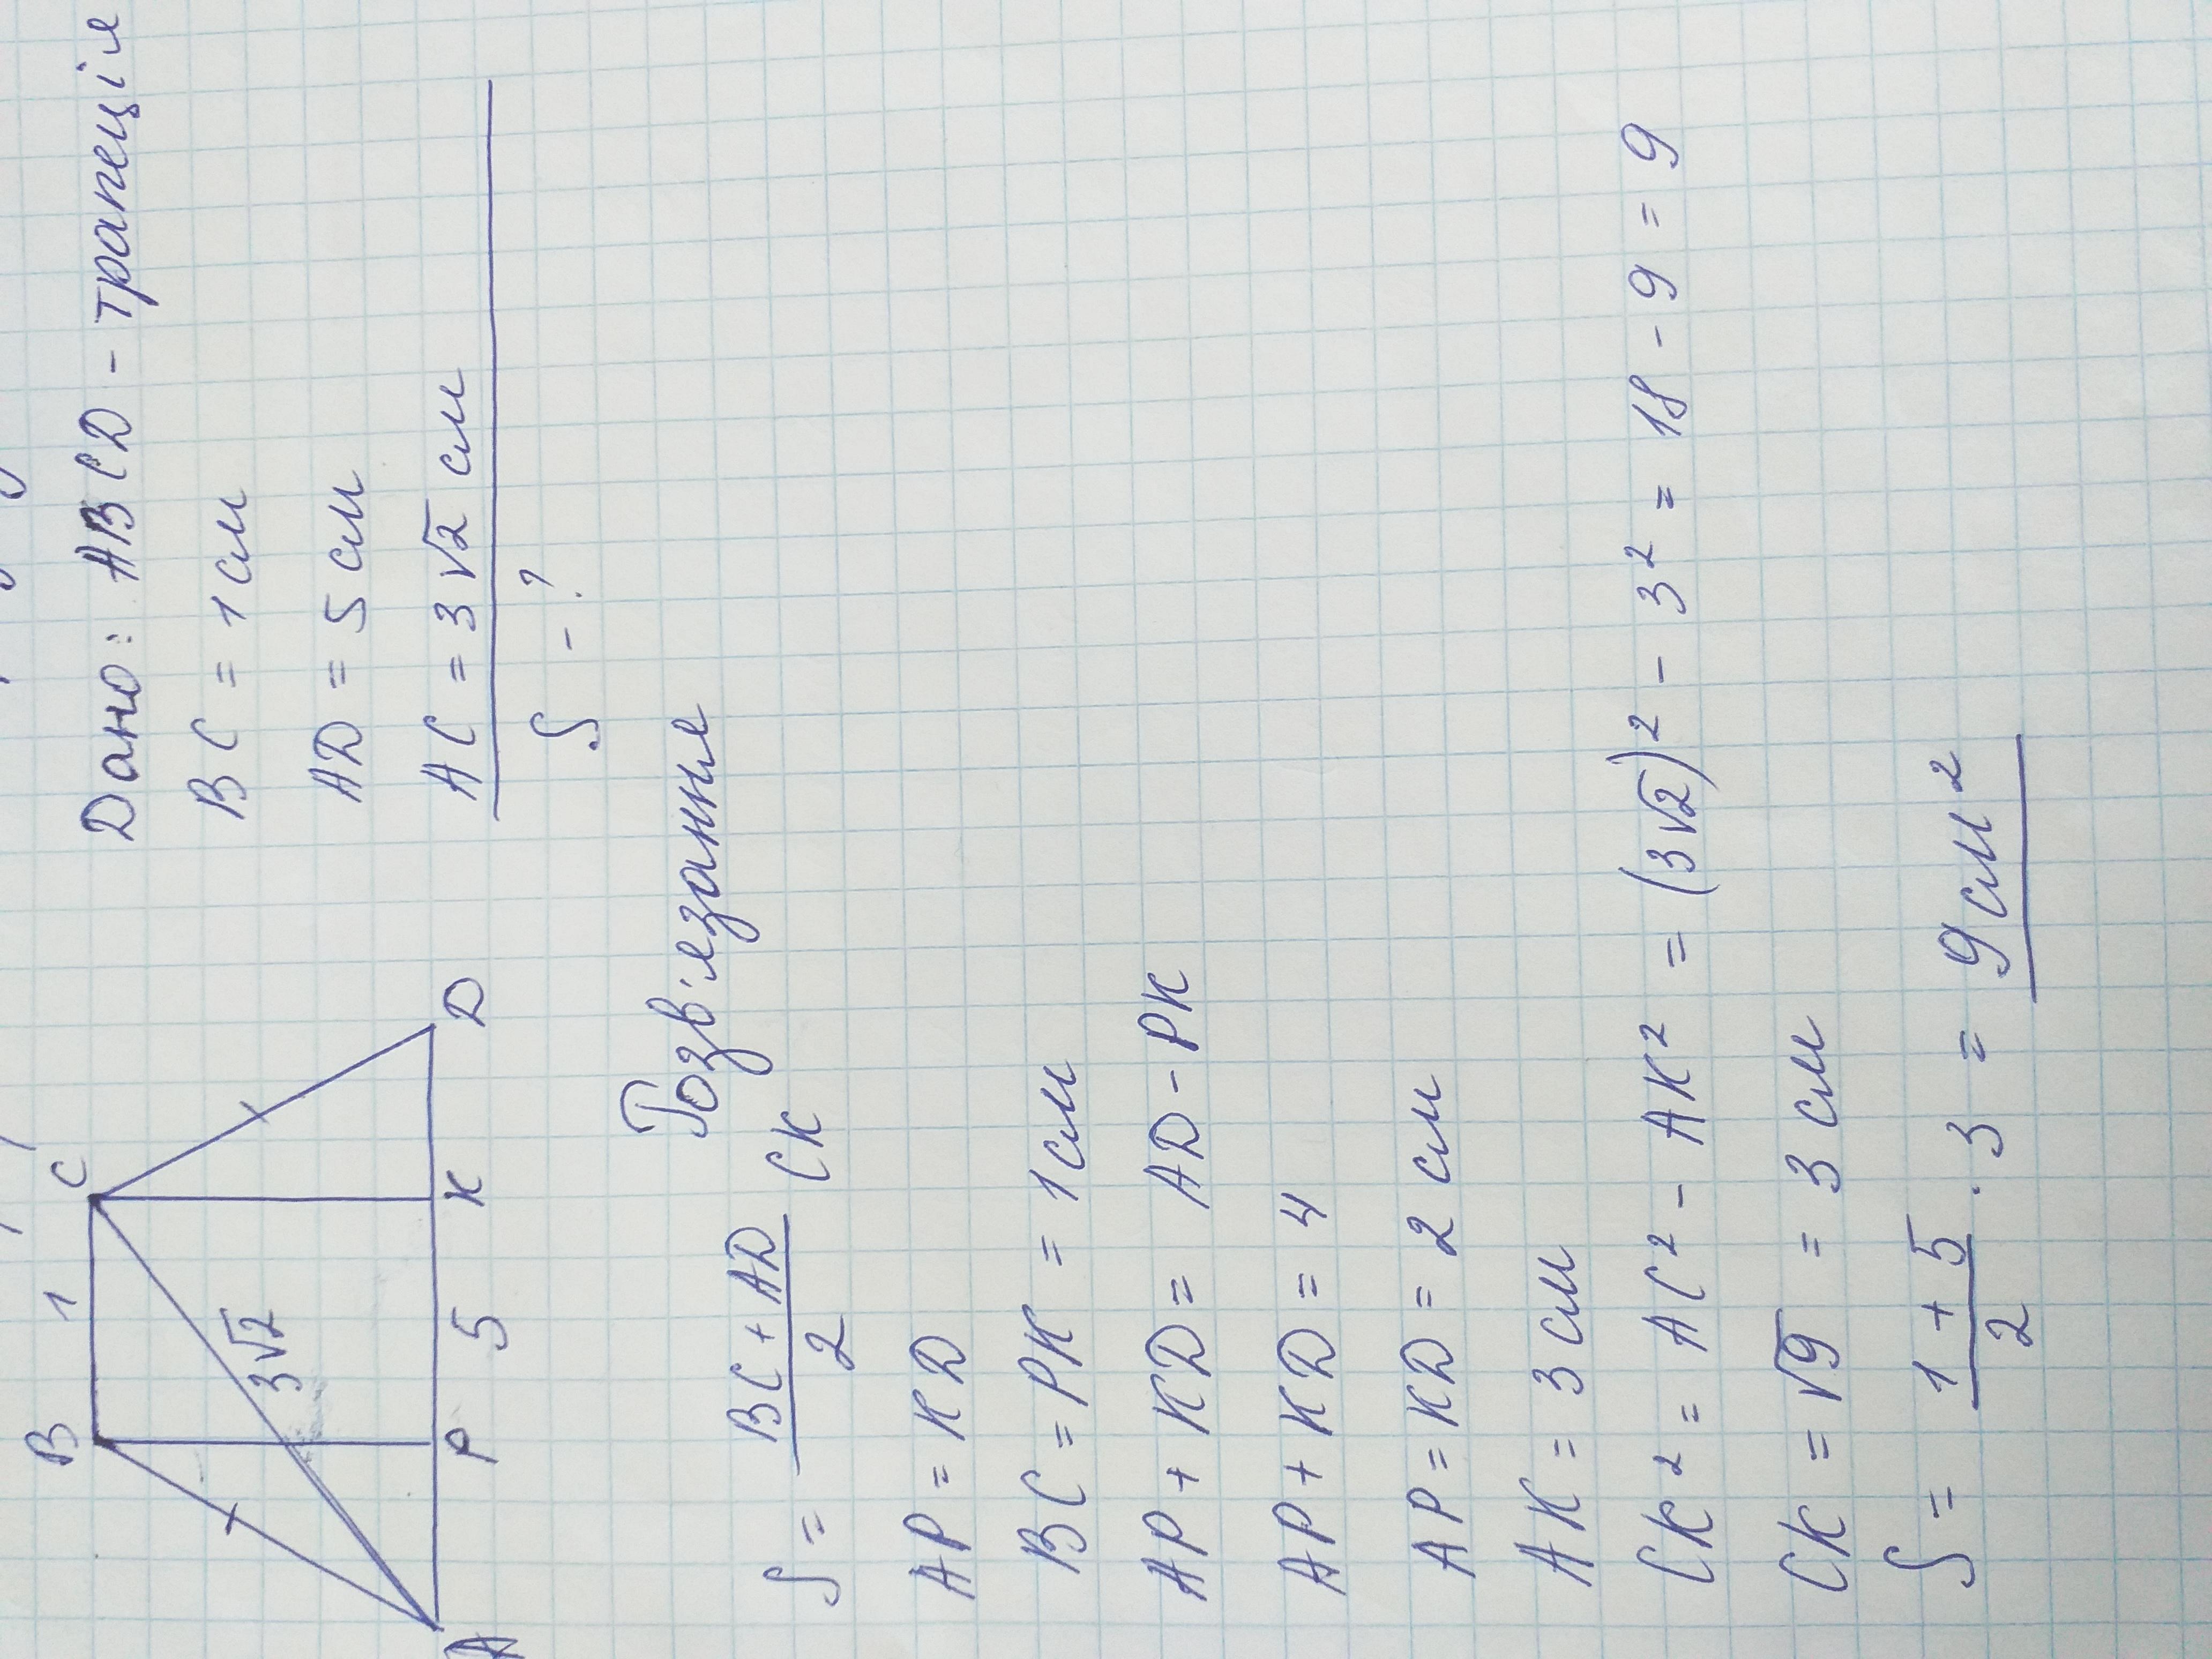 B 1 C
3√2
A P 5 K D
Дано: ABCD - трапеція
BC = 1 см
AD = 5 см
AC = 3√2 см
S - ?
Розв'язання
S = (BC + AD)/2 CK
AP = KD
BC = PK = 1 см
AP + KD = AD - PK
AP + KD = 4
AP = KD = 2 см
AK = 3 см
CK² = AC² - AK² = (3√2)² - 3² = 18 - 9 = 9
CK = √9 = 3 см
S = (1 + 5)/2 · 3 = 9 см²